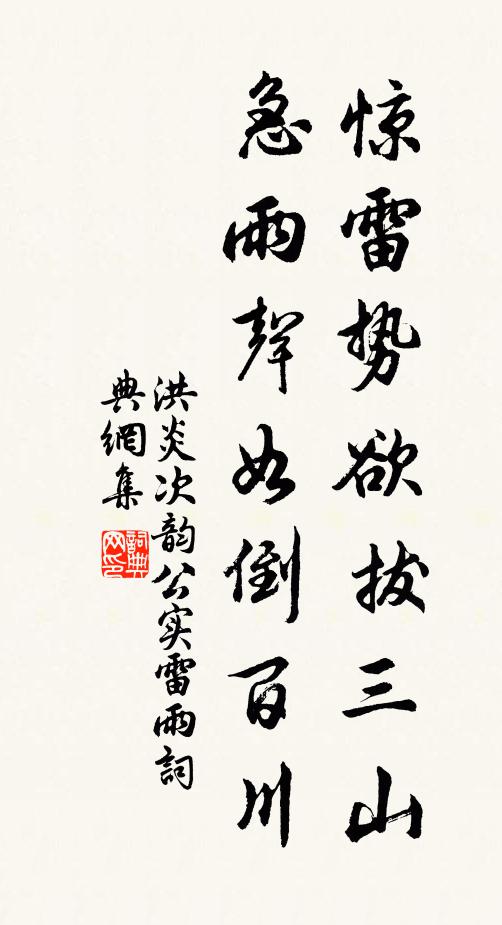 惊雷势欲拔三山
急雨聲如倒百川
洪炎次韵公实雷雨詞
典網集
詞典
网印